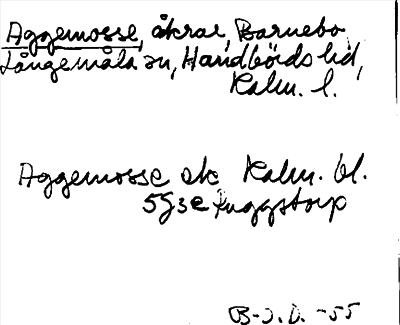 Aggemosse, åkrar, Barnebo
Långemåla sn, Handbörds hd,
Kalm. l.
Aggemosse åk Kalm. bl.
5g3e Ruggstorp
B-J.D. -55